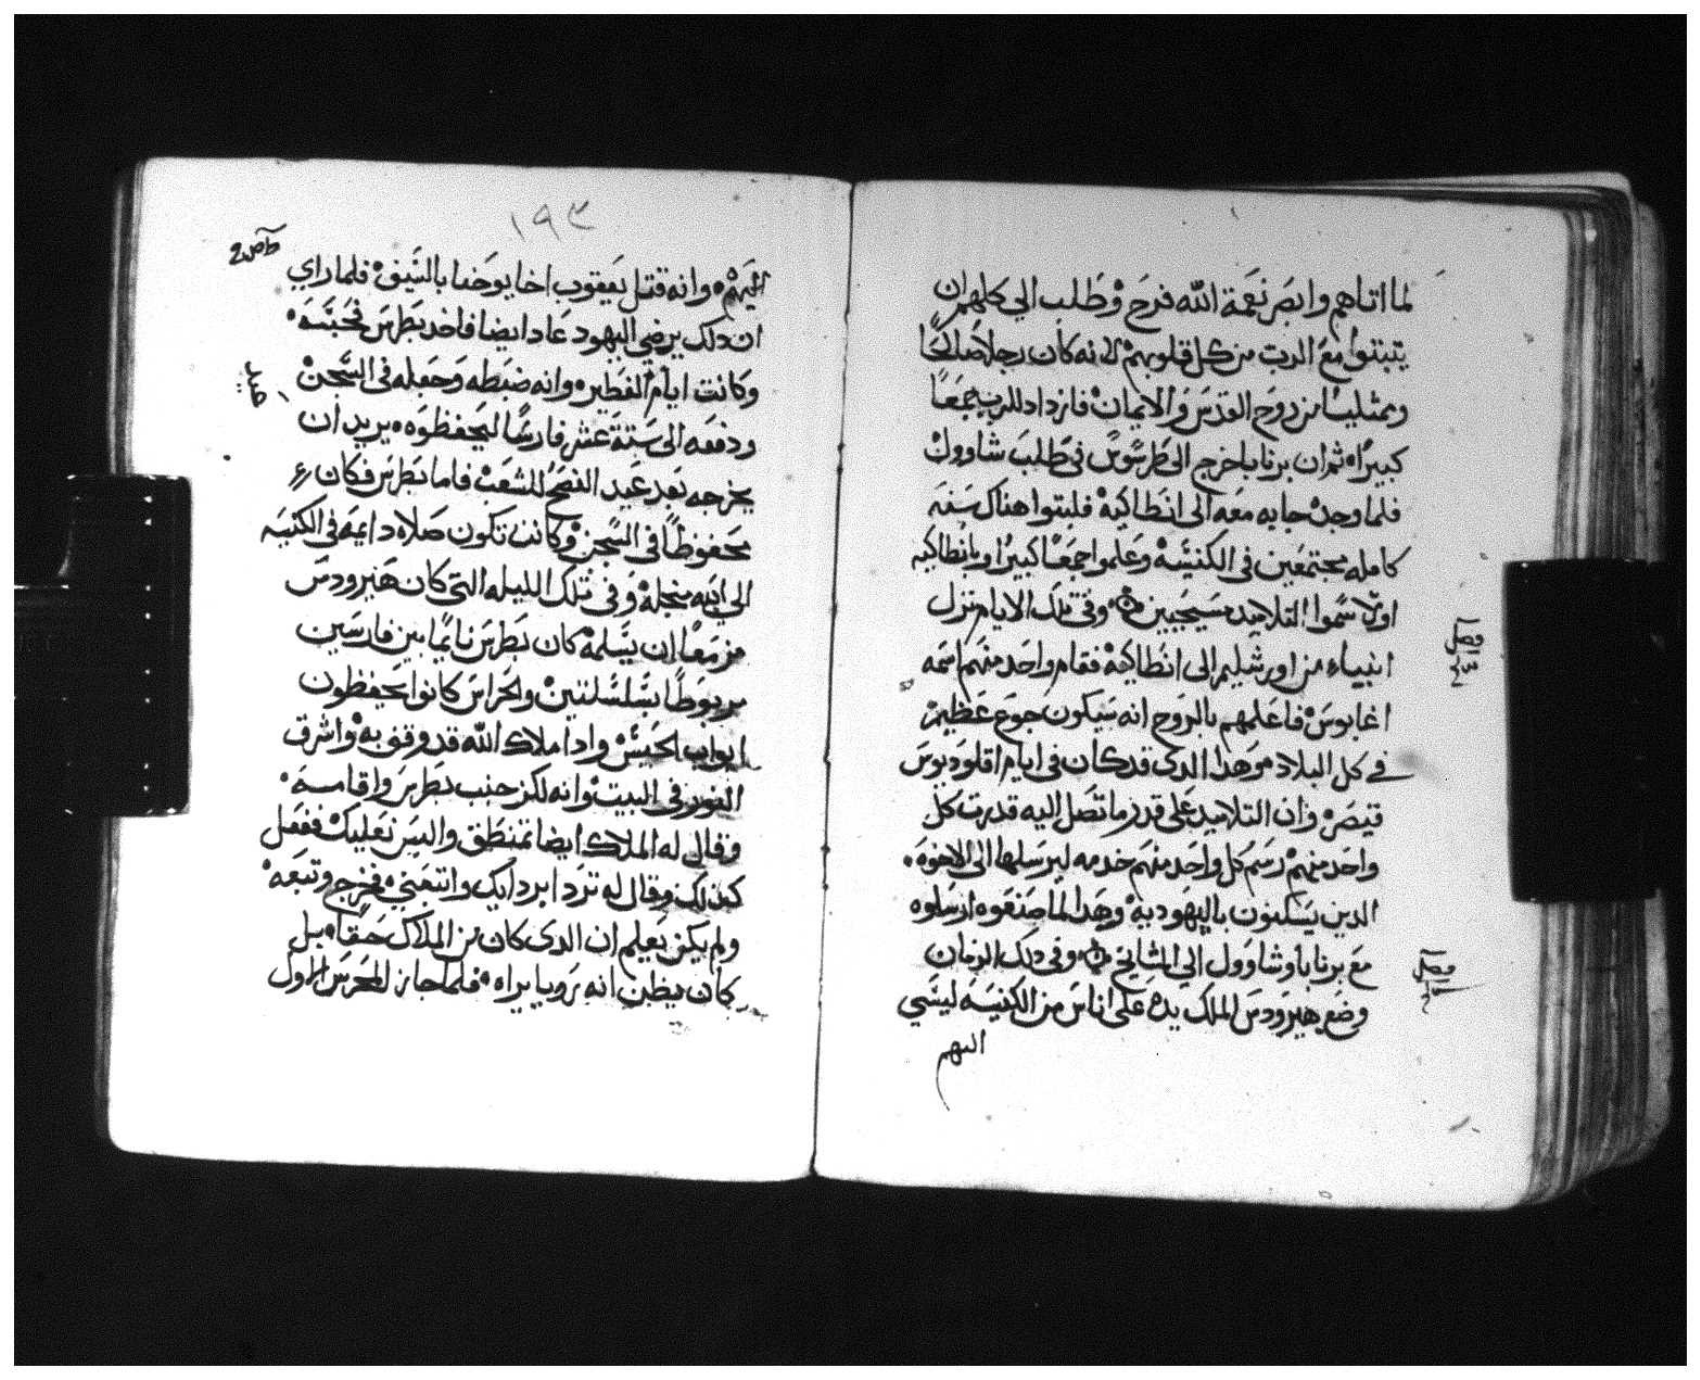 لما اتاهم وابصر نعمة الله فرح وطلب الي كلهم ان
يتبتوا مع الرب من كل قلوبهم لانه كان رجلا صالحا
وممتليا من روح القدس والايمان فازداد للرب جمعا
كبيرا ثم ان برنابا خرج الى طرسوس في طلب شاوول
فلما وجده جابه معه الى انطاكية فلبتوا هناك سنه
كامله مجتمعين في الكنيسه وعلموا جمعا كبيرا وبانطاكيه
اولا سموا التلاميد مسيحيين وفي تلك الايام نزل
انبياء من اورشليم الى انطاكية فقام واحد منهم اسمه
اغابوس فاعلمهم بالروح انه سيكون جوع عظيم
في كل البلاد وهدا الدى قد كان في ايام اقلوديوس
قيصر وان التلاميد على قدر ما تصل اليه قدرت كل
واحد منهم رسم كل واحد منهم خدمه ليرسلها الى الاخوه
الدين يسكنون باليهودية وهدا لما صنعوه ارسلوه
مع برنابا وشاوول الي المشايخ وفي دلك الزمان
وضع هيرودس الملك يده على اناس من الكنيسه ليسي
اليهم
فصل
فصل
١٩٣
اليهم وانه قتل يعقوب اخا يوحنا بالسيف فلما راي
ان دلك يرضي اليهود عاد ايضا فاخد بطرس فحبسه
وكانت ايام الفطير وانه ضبطه وجعله في السجن
ودفعه الى ستة عشر فارسا ليحفظوه يريد ان
يخرجه بعد عيد الفصح للشعب فاما بطرس فكان
محفوظا في السجن وكانت تكون صلاه دايمه في الكنيسه
الي الله من اجله وفي تلك الليله التي كان هيرودس
مزمعا ان يسلمه كان بطرس نايما بين فارسين
مربوطا بسلسلتين والحراس كانوا يحفظون
ابواب الحبس وادا ملاك الله قد وقف به واشرق
النور في البيت وانه لكز جنب بطرس واقامه
وقال له الملاك ايضا تمنطق والبس نعليك ففعل
كدلك وقال له تردا بردايك واتبعني فخرج وتبعه
ولم يكن يعلم ان الدى كان من الملاك حقا بل
كان يظن انه رويا يراه فلما جاز المحرس الاول